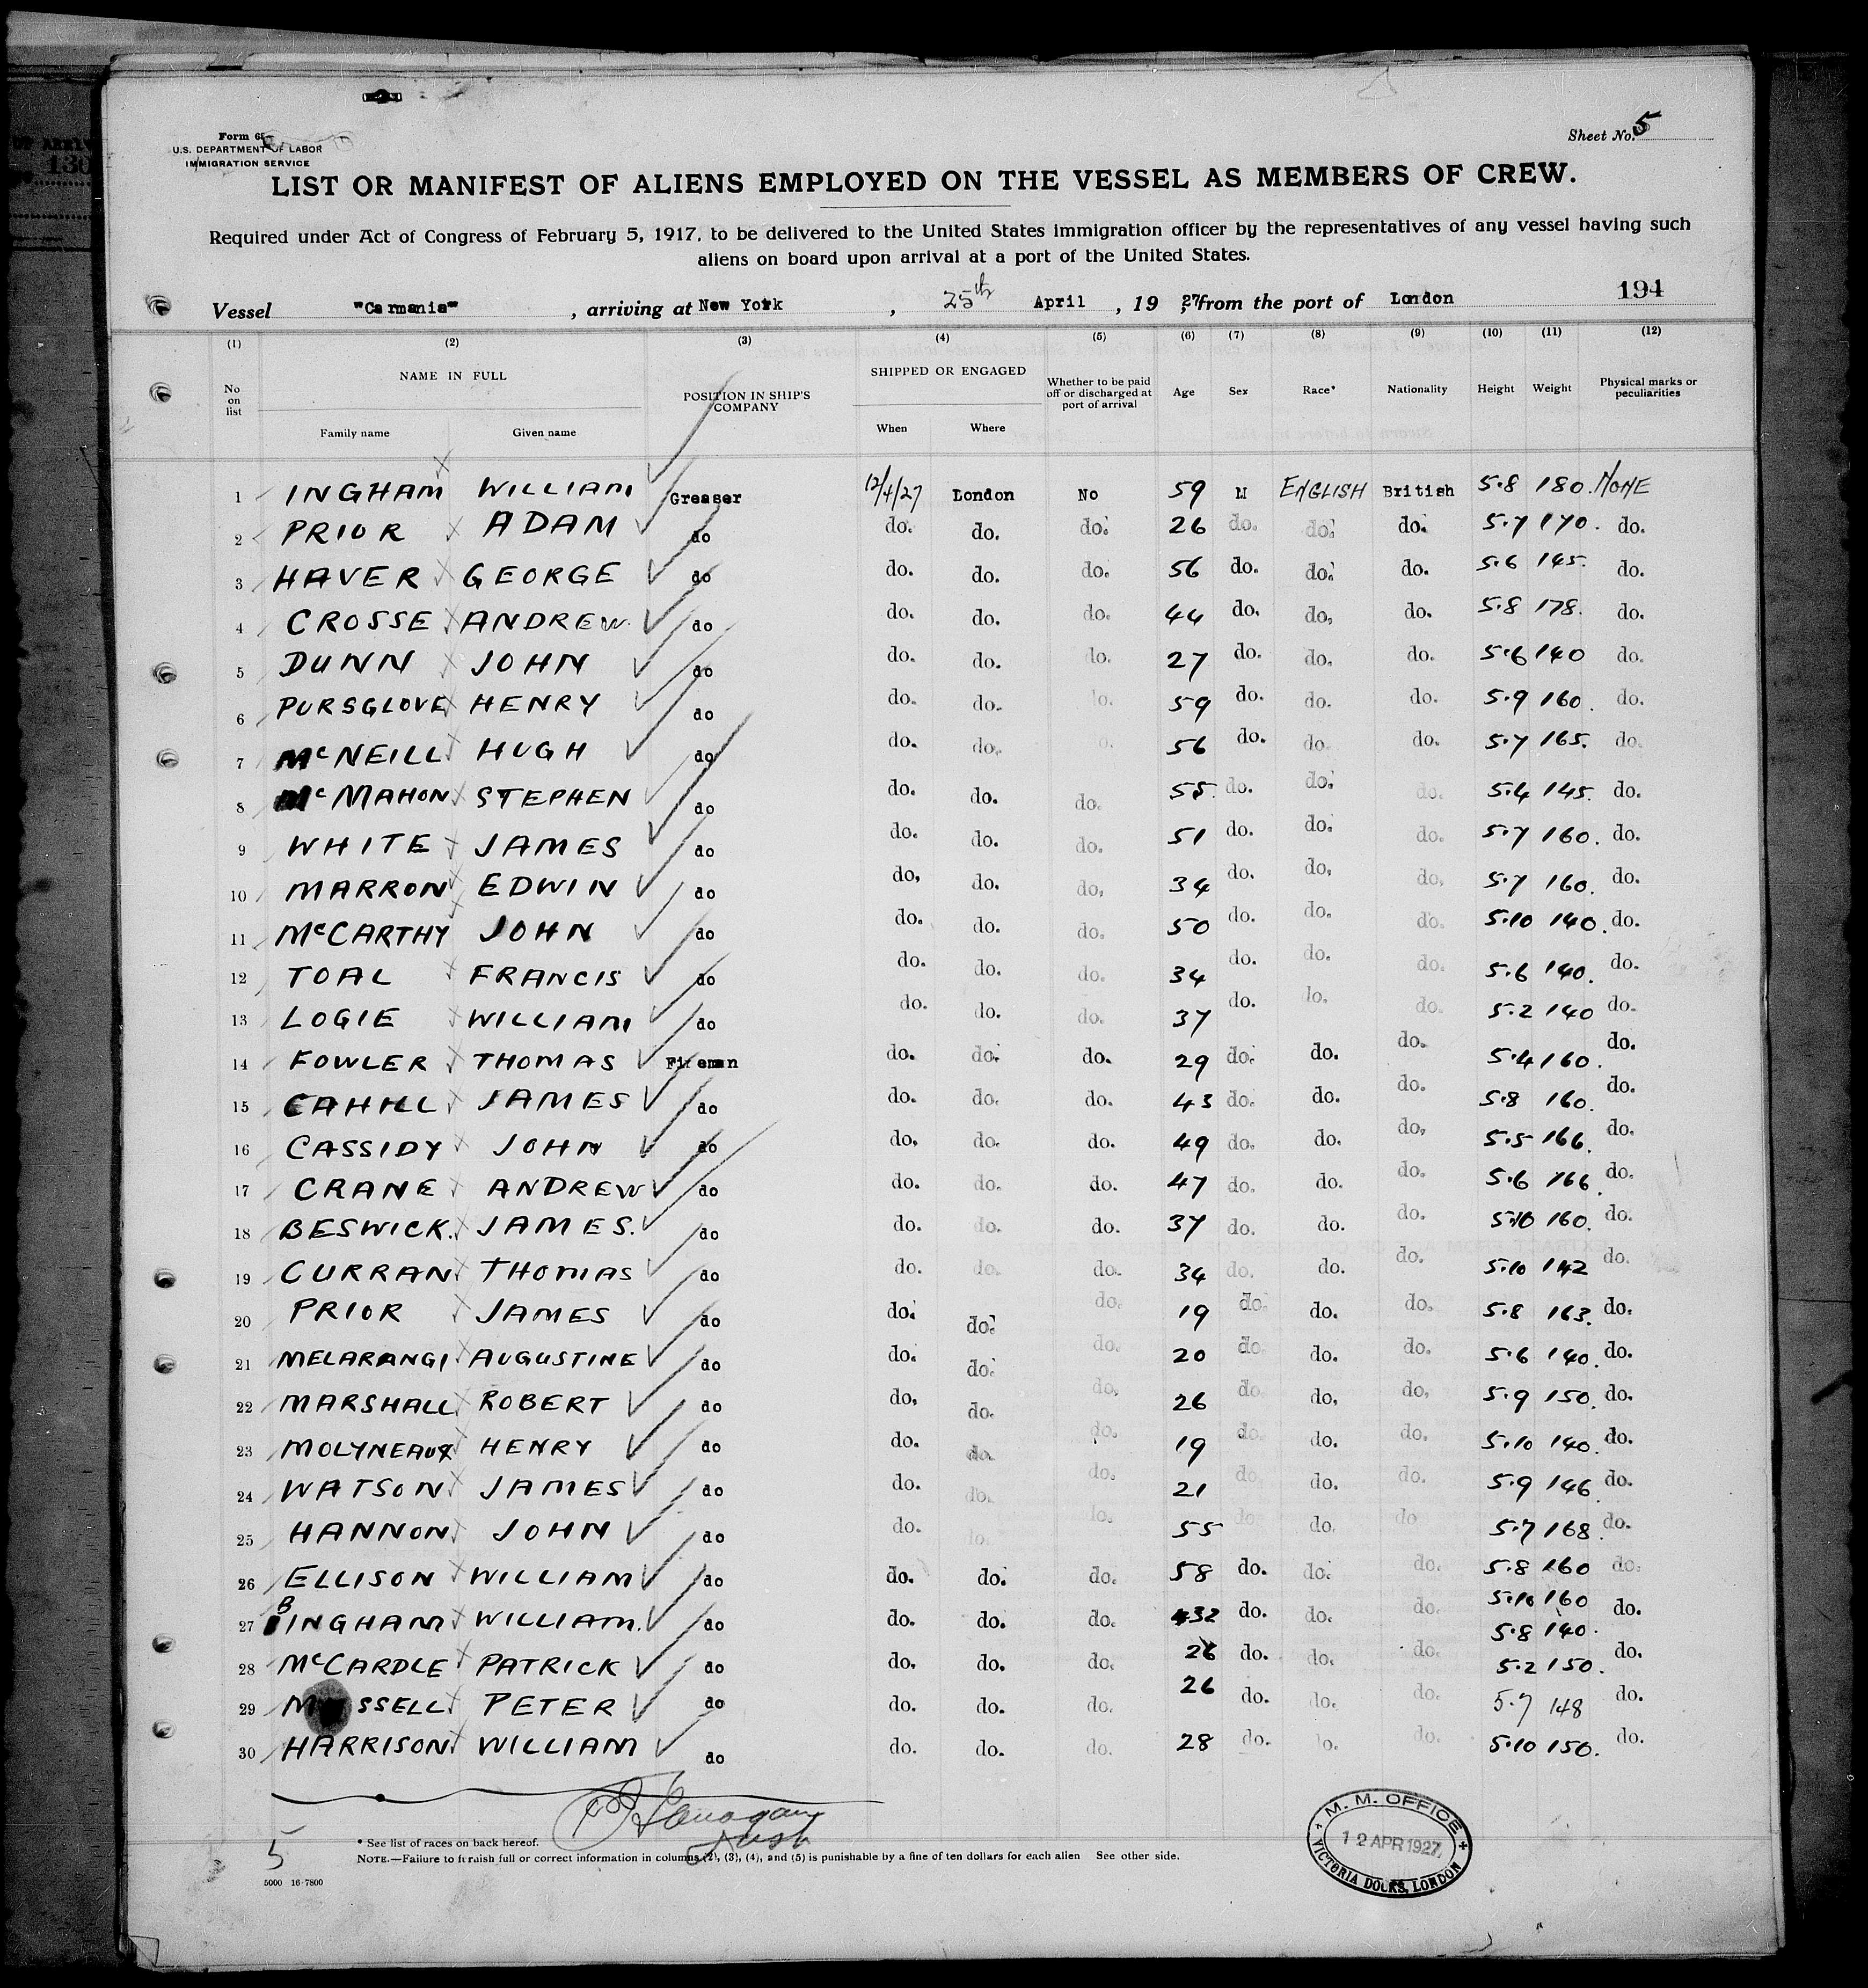 Form 6
U.S. DEPARTMENT OF LABOR
IMMIGRATION SERVICE
Sheet No. 5
LIST OR MANIFEST OF ALIENS EMPLOYED ON THE VESSEL AS MEMBERS OF CREW.
Required under Act of Congress of February 5, 1917, to be delivered to the United States immigration officer by the representatives of any vessel having such
aliens on board upon arrival at a port of the United States.
194
Vessel "Carmania", arriving at New York, 25th April, 1927, from the port of London
(1) (2) (3) (4) (5) (6) (7) (8) (9) (10) (11) (12)
No on list NAME IN FULL Family name Given name POSITION IN SHIP'S COMPANY SHIPPED OR ENGAGED When Where Whether to be paid off or discharged at port of arrival Age Sex Race* Nationality Height Weight Physical marks or peculiarities
1 INGHAM WILLIAM Greaser 12/4/27 London No 59 M ENGLISH British 5.8 180. NONE
2 PRIOR ADAM do do. do. do. 26 do. do. do. 5.7 170. do.
3 HAVER GEORGE do do. do. do. 56 do. do. do. 5.6 145. do.
4 CROSSE ANDREW. do do. do. do. 44 do. do. do. 5.8 178. do.
5 DUNN JOHN do do. do. do. 27 do. do. do. 5.6 140 do.
6 PURSGLOVE HENRY do do. do. do. 59 do. do. do. 5.9 160. do.
7 McNEILL HUGH do do. do. 56 do. do. do. 5.7 165. do.
8 McMAHON STEPHEN do do. do. do. 55. do. do. do. 5.4 145. do.
9 WHITE JAMES do do. do. do. 51 do. do. do. 5.7 160. do.
10 MARRON EDWIN do do. do. do. 34 do. do. do. 5.7 160. do.
11 McCARTHY JOHN do do. do. do. 50 do. do. do. 5.10 140. do.
12 TOAL FRANCIS do do. do. do. 34 do. do. do. 5.6 140. do.
13 LOGIE WILLIAM do do. do. do. 37 do. do. do. 5.2 140 do.
14 FOWLER THOMAS Fireman do. do. do. 29 do. do. do. 5.4 160. do.
15 CAHILL JAMES do do. do. do. 43 do. do. do. 5.8 160. do.
16 CASSIDY JOHN do do. do. do. 49 do. do. do. 5.5 166. do.
17 CRANE ANDREW do do. do. do. 47 do. do. do. 5.6 166. do.
18 BESWICK. JAMES. do do. do. do. 37 do. do. do. 5.10 160. do.
19 CURRAN THOMAS do do. do. do. 34 do. do. do. 5.10 142 do.
20 PRIOR JAMES do do. do. do. 19 do. do. do. 5.8 163. do.
21 MELARANGI AUGUSTINE do do. do. do. 20 do. do. do. 5.6 140. do.
22 MARSHALL ROBERT do do. do. do. 26 do. do. do. 5.9 150. do.
23 MOLYNEAUX HENRY do do. do. do. 19 do. do. do. 5.10 140. do.
24 WATSON JAMES do do. do. do. 21 do. do. do. 5.9 146 do.
25 HANNON JOHN do do. do. do. 55 do. do. do 5.7 168. do.
26 ELLISON WILLIAM do do. do. do. 58 do. do. do. 5.8 160 do.
5.10 160
27 BINGHAM WILLIAM. do do. do. do. 32 do. do. do. 5.8 140. do.
28 McCARDLE PATRICK do do. do. do. 26 do. do. do. 5.2 150. do.
29 SSELL PETER do do. do. do. 26 do. do. do. 5.7 148 do.
30 HARRISON WILLIAM do do. do. do. 28 do. do. do. 5.10 150. do.
5
* See list of races on back hereof.
NOTE.—Failure to furnish full or correct information in columns (2), (3), (4), and (5) is punishable by a fine of ten dollars for each alien See other side.
5000 16-7800
M. M. OFFICE
12 APR 1927
VICTORIA DOCKS, LONDON